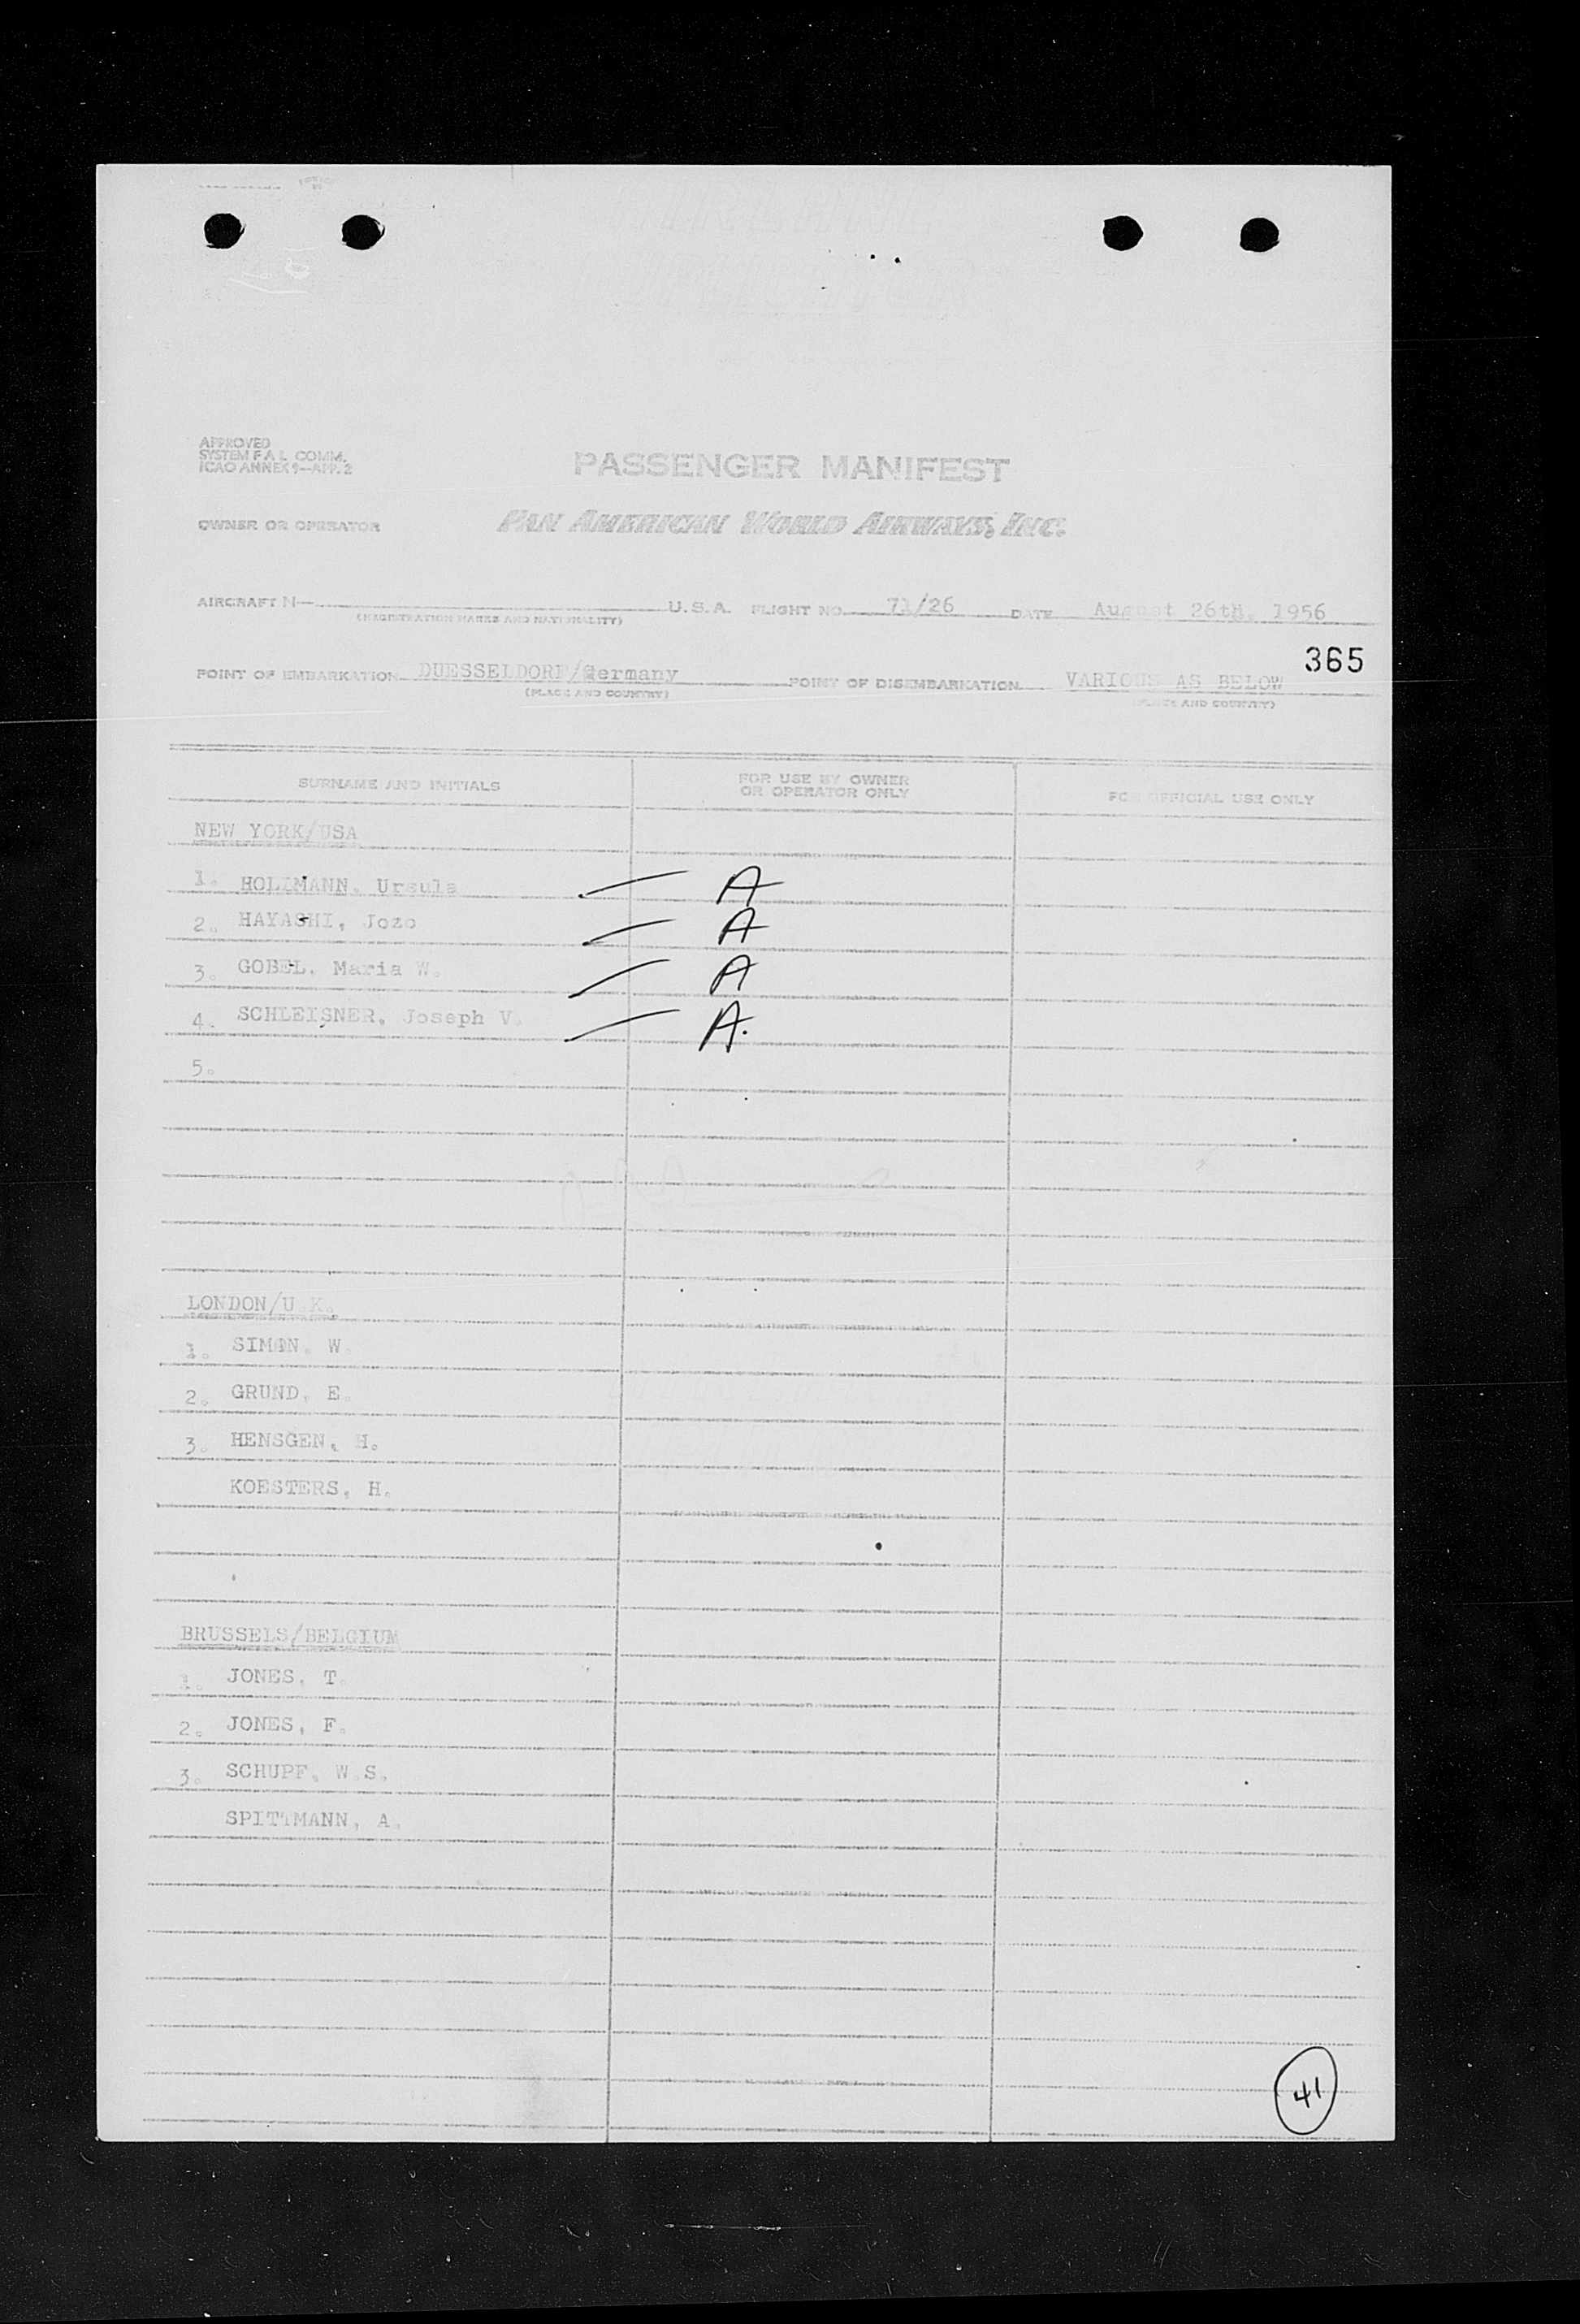 APPROVED
SYSTEM F A L COMM.
ICAO ANNEX 9—APP. 2
PASSENGER MANIFEST
OWNER OR OPERATOR PAN AMERICAN WORLD AIRWAYS, INC.
AIRCRAFT N— U. S. A. FLIGHT NO. 71/26 DATE August 26th, 1956
(REGISTRATION MARKS AND NATIONALITY)
365
POINT OF EMBARKATION DUESSELDORF/Germany POINT OF DISEMBARKATION VARIOUS AS BELOW
(PLACE AND COUNTRY) (PLACE AND COUNTRY)
SURNAME AND INITIALS FOR USE BY OWNER OR OPERATOR ONLY FOR OFFICIAL USE ONLY
NEW YORK/USA
1. Ursula A
2. HAYASHI, Jozo A
3. GOBEL, Maria W. A
4. SCHLEISNER, Joseph V. A.
5.
LONDON/U.K.
1. SIMON, W.
2. GRUND, E.
3. HENSGEN, H.
KOESTERS, H.
BRUSSELS/BELGIUM
1. JONES, T.
2. JONES, F.
3. SCHUPF, W.S.
SPITTMANN, A.
41